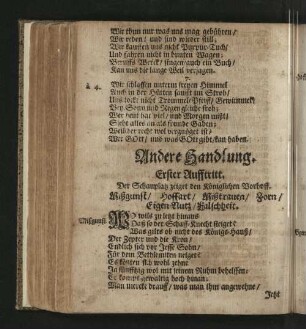 Wir thun nur was uns mag gebühren/
Wir reden/ und sind wieder still;
Wir kauffen uns nicht Purpur-Tuch/
Und fahren nicht in bunten Wagen:
und ein Buch/
Kan uns die lange Weil verjagen.
7.
à 4. Wir schlaffen unterm freyen Himmel
Auch in der Hütten sanfft und Stroh/
Uns lockt nicht
Bey Sonn und Regen gleiche froh;
Wer heut hat viel/ und Morgen nicht/
Sieht alles an als fremde Gaben;
Weil der nicht viel vergnüget ist/
Wer GOtt/ und was GOtt gibt/kan haben.
Andere Handlung.
Erster Aufftritt.
Der Schauplatz zeiget den Königlichen Vorhoff.
Mißgunst/ Hoffart/ Mißtrauen/ Zorn/
Eigen-Nutz/ Falschheit.
Mißgunst. WO wils zu letzt hinaus
Daß so der Schaaf-Knecht steiget?
Was gilts ob nicht das Königs-Hauß/
Der Zepter und die Kron/
Endlich sich vor Jesse Sohn/
Für dem Bethlemiten neiget?
Es können sich wohl zehen
Ja fünfftzig wol mit seinem Ruhm behelffen;
Er kompt gewaltig hoch hinan:
Man mercke drauff/ was man ihm angewehne/
Jetzt